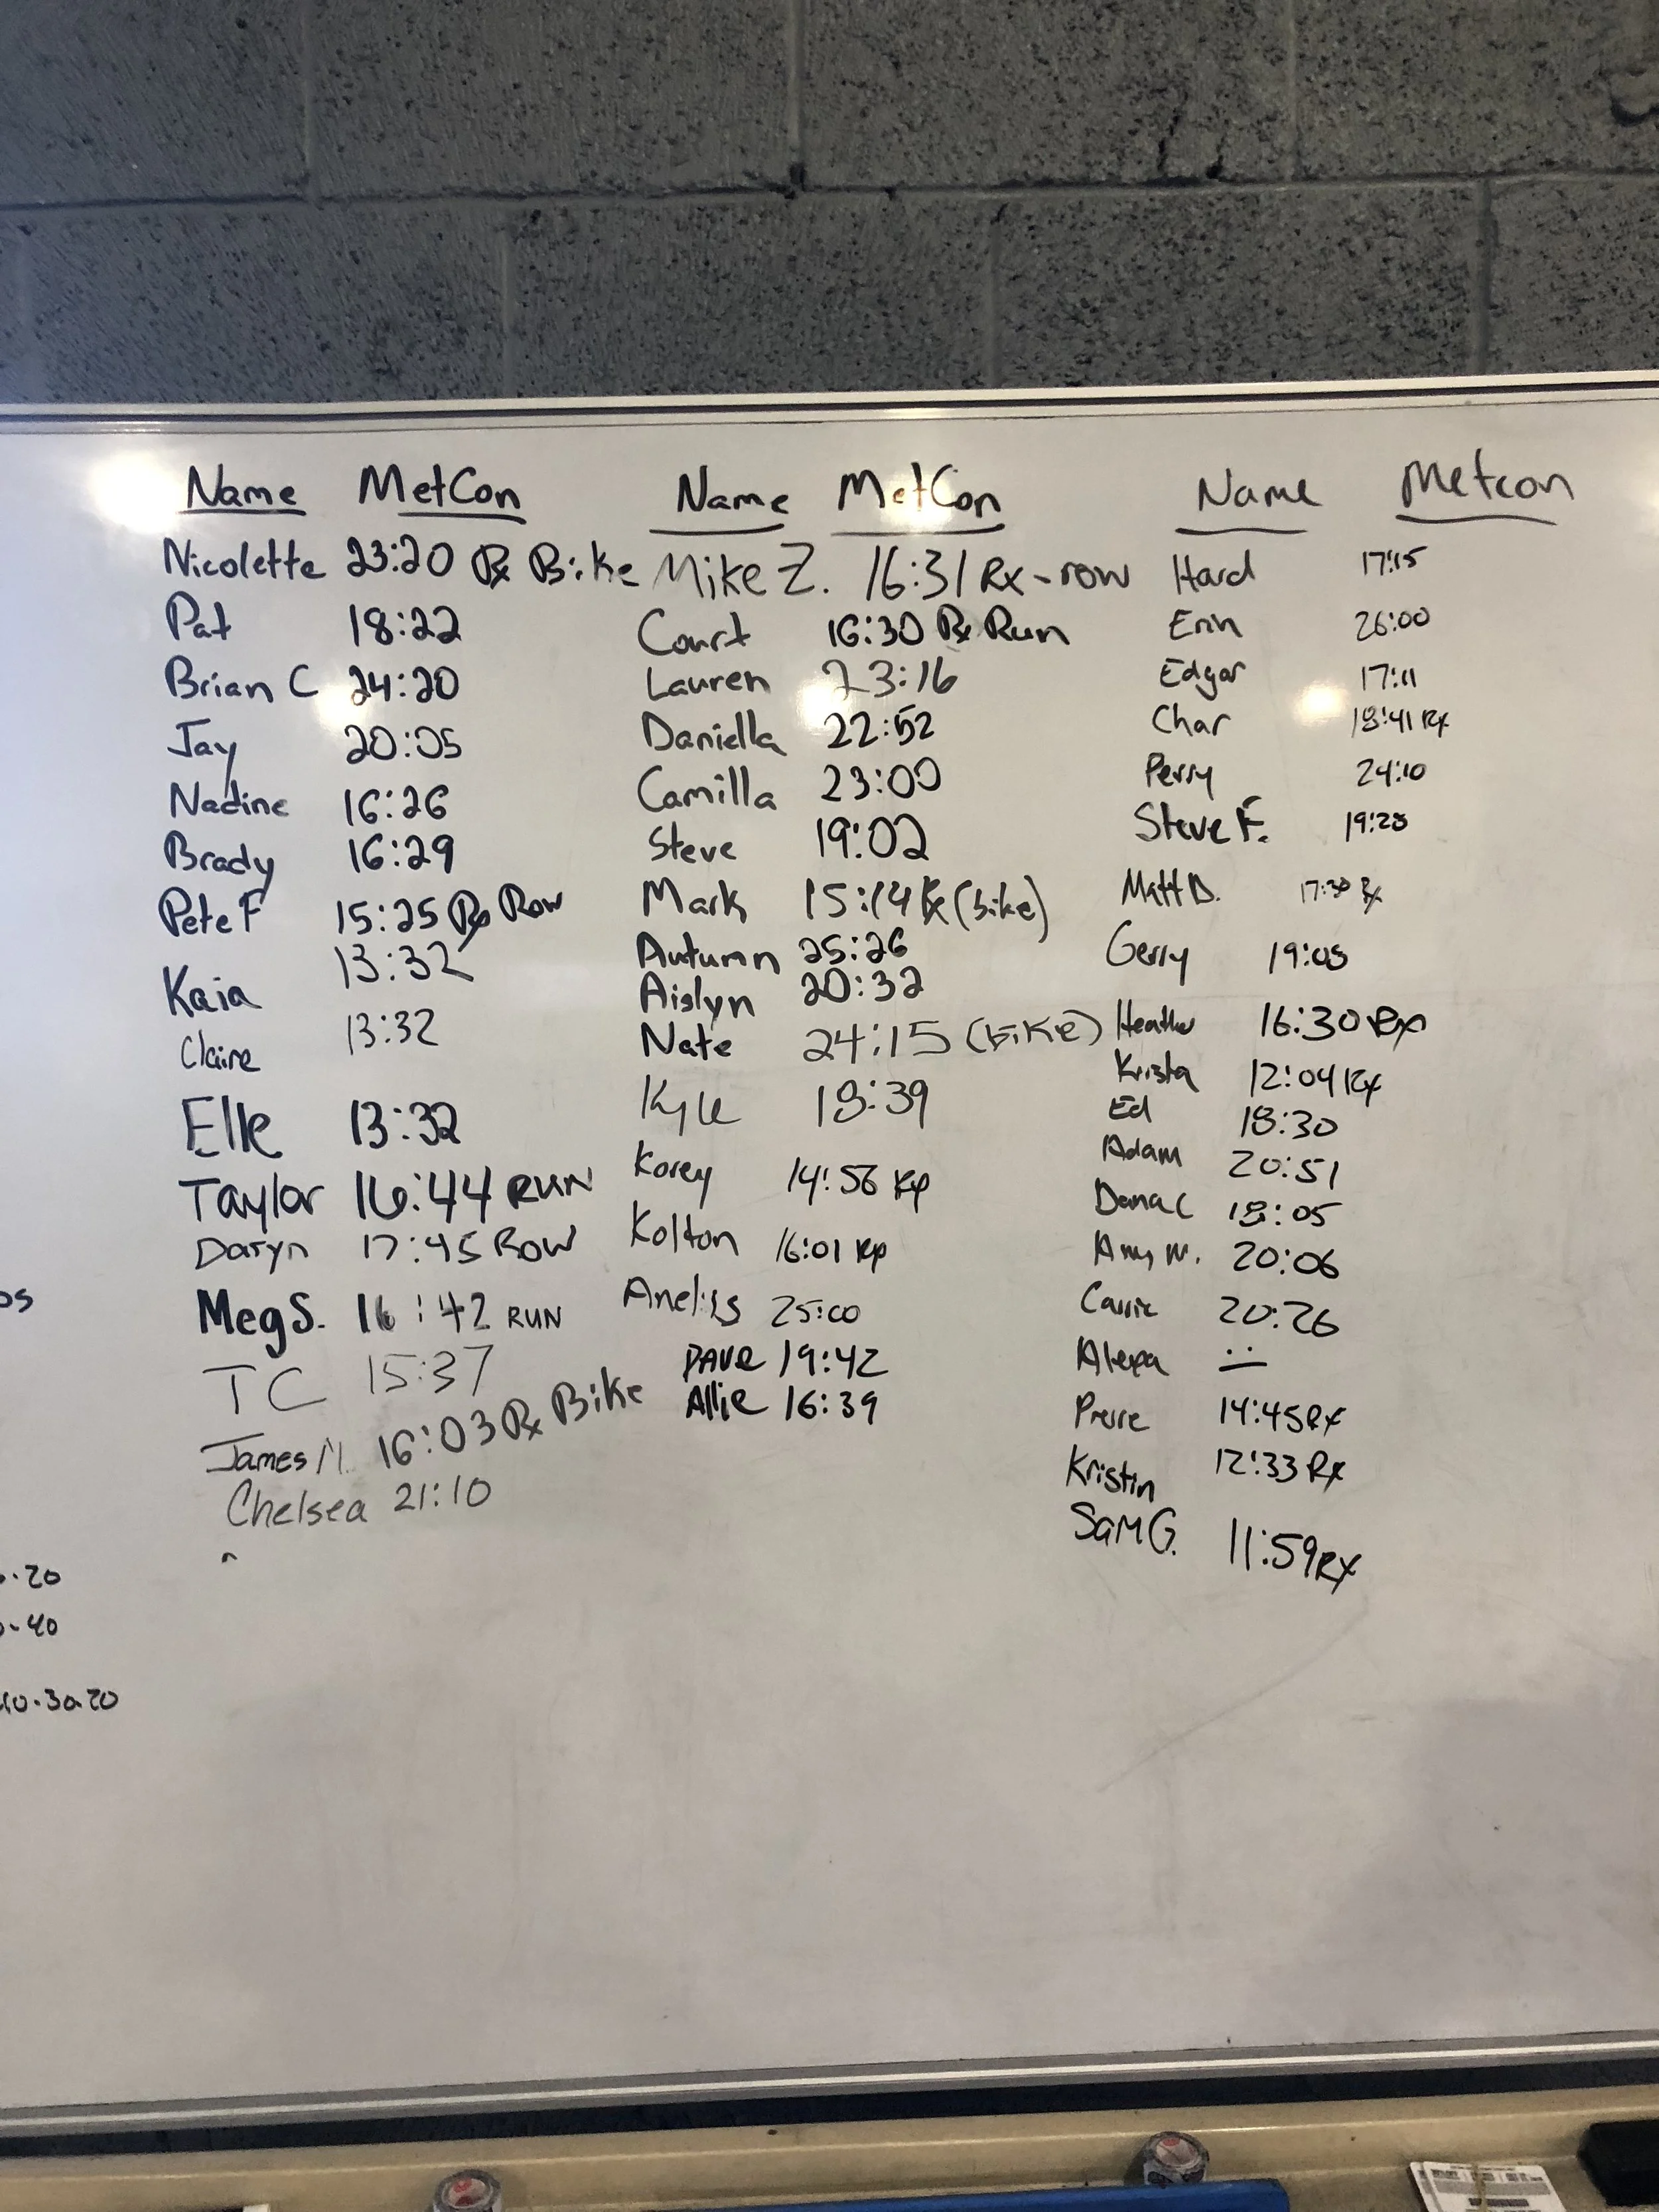 Name MetCon
Nicolette 23:20 Rx Bike
Pat 18:22
Brian C 24:20
Jay 20:05
Nadine 16:26
Brady 16:29
Pete F 15:25 Rx Row
Kaia 13:32
Claire 13:32
Elle 13:32
Taylor 16:44 RUN
Daryn 17:45 ROW
Meg S. 16:42 RUN
TC 15:37
James M. 16:03 Rx Bike
Chelsea 21:10
Name MetCon
Mike Z. 16:31 Rx-row
Court 16:30 Rx Run
Lauren 23:16
Daniella 22:52
Camilla 23:00
Steve 19:02
Mark 15:14 Rx (bike)
Autumn 25:26
Aislyn 20:32
Nate 24:15 (biKe)
Kyle 18:39
Korey 14:56 Rx
Kolton 16:01 Rx
Aneliis 25:00
DAVe 19:42
Allie 16:39
Name Metcon
Hard 17:15
Erin 26:00
Edgar 17:11
Char 18:41 Rx
Perry 24:10
Steve F. 19:28
Matt D. 17:30 Rx
Gerry 19:05
Heather 16:30 Rx
Krista 12:04 Rx
Ed 18:30
Adam 20:51
Dana C 18:05
Amy M. 20:06
Carrie 20:26
Alexa
Pierre 14:45 Rx
Kristin 12:33 Rx
Sam G. 11:59 Rx
20
40
30.20